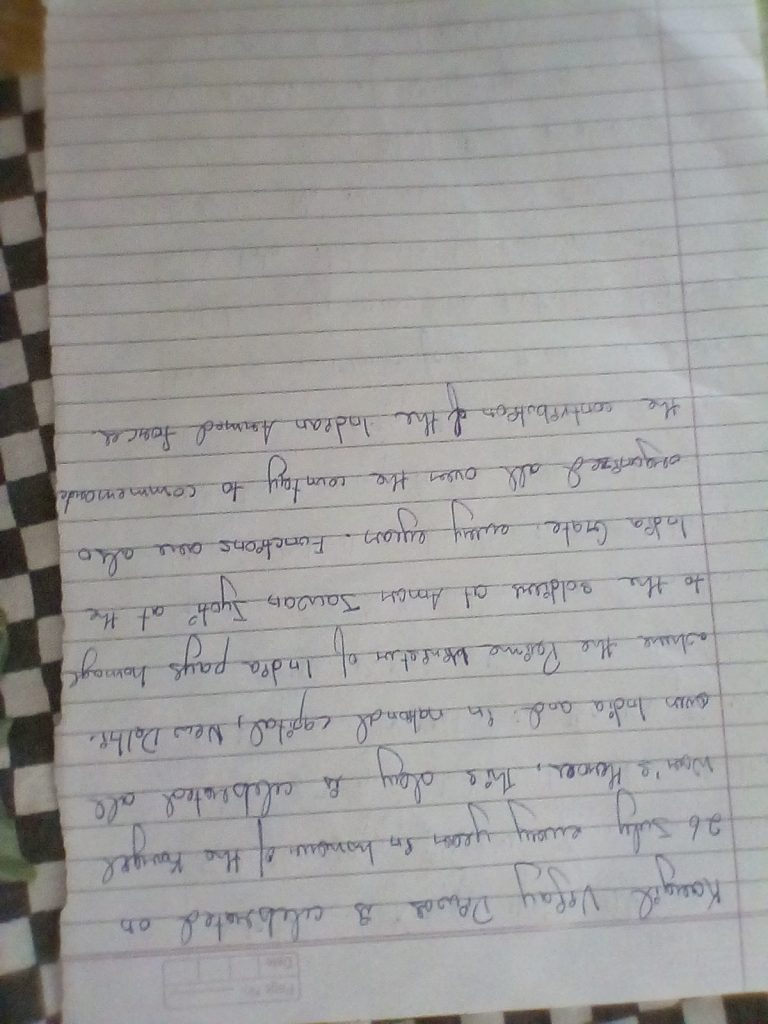 Page No.
Date
Kargil Vijay Diwas is celebrated on
26 July every year in honour of the Kargil
War's Heroes. This day is celebrated all
over India and in national capital, New Delhi.
where the Prime Minister of India pays homage
to the soldiers at Amar Jawan Jyoti at the
India Gate, every year. Functions are also
organized all over the country to commemorate
the contribution of the Indian Armed Forces.